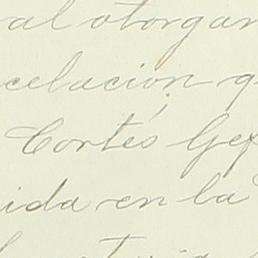 al otorgan
celación q
Cortés Gef
ida en la